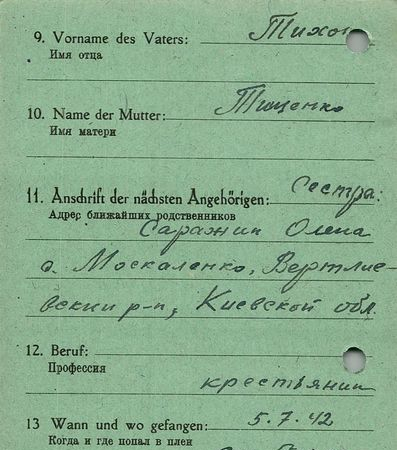 9. Vorname des Vaters: Тихон
Имя отца
10. Name der Mutter: Тищенко
Имя матери
11. Anschrift der nächsten Angehörigen: Сестра:
Адрес ближайших родственников
Саражин Олена
с. Москаленко, Вертлие-
вский р-н, Киевской обл.
12. Beruf:
Профессия
крестьянин
13 Wann und wo gefangen: 5.7.42
Когда и где попал в плен